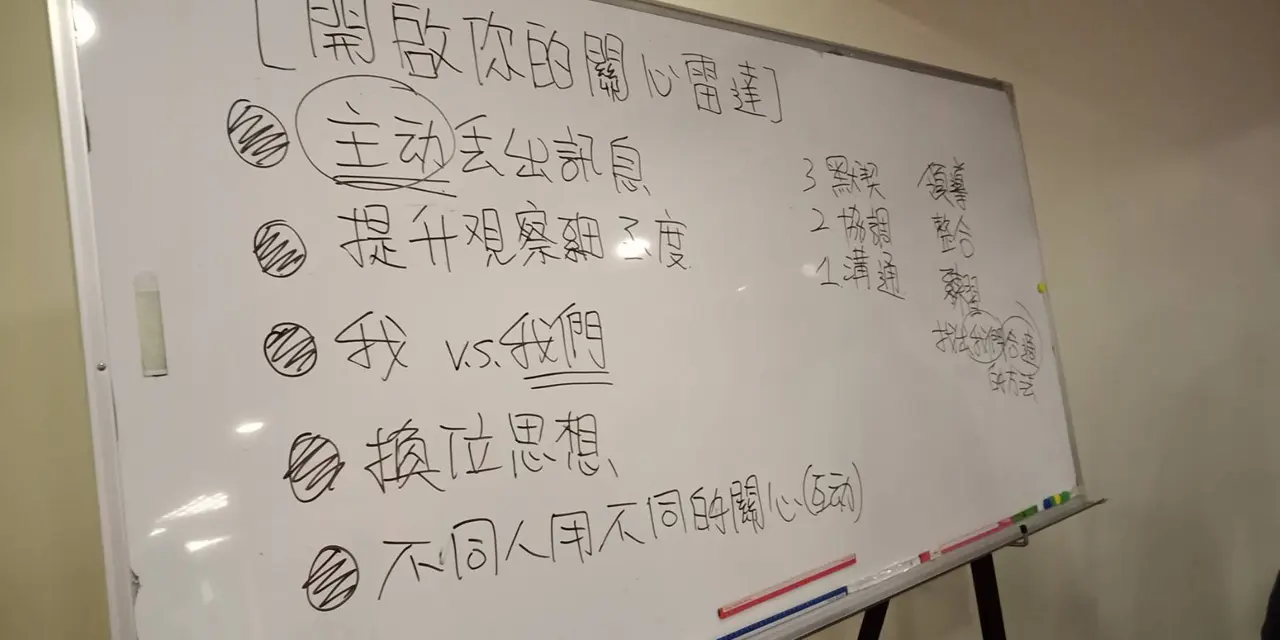 [開啟你的關心雷達]
主动丟出訊息
提升觀察細 度
我 v.s. 我們
換位思想
不同人用不同的關心(互动)
3 默契 領導
2 協調 整合
1. 溝通 練習
找出我們合適
的方法